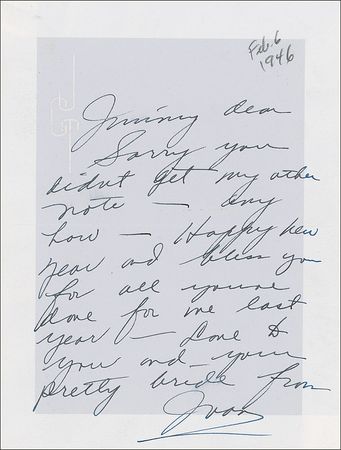 Feb. 6
1946
Jimmy dear
Sorry you
didnt get my other
note — any
how — Happy New
year and bless you
for all youve
done for me last
year — Love to
you and your
pretty bride from
Joan